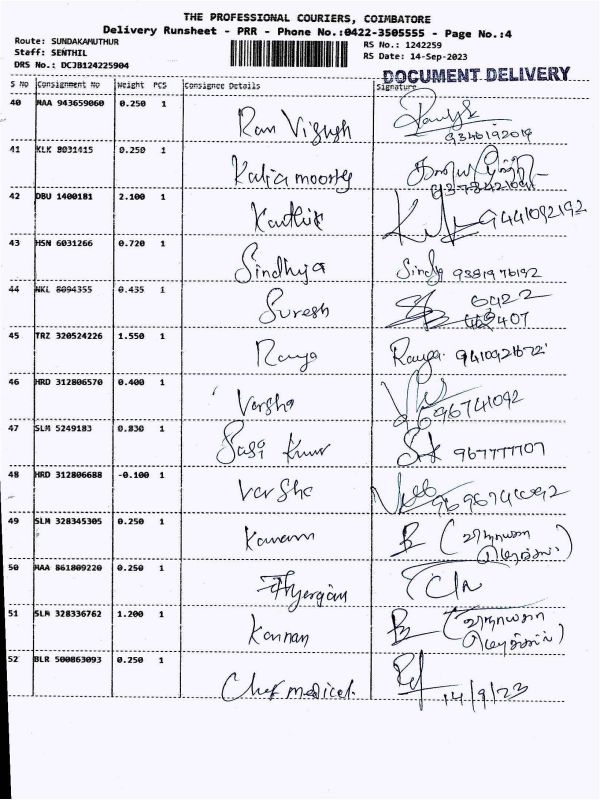 THE PROFESSIONAL COURIERS, COIMBATORE
Delivery Runsheet - PRR - Phone No.:0422-3505555 - Page No.:4
Route: SUNDAKAMUTHUR
Staff: SENTHIL
DRS No.: DCJB124225904
RS No.: 1242259
RS Date: 14-Sep-2023
DOCUMENT DELIVERY
S No Consignment No Weight PCS Consignee Details Signature
40 MAA 943659060 0.250 1
9346192019
41 KLK 8031415 0.250 1 Kalia moorthy
42 DBU 1400181 2.100 1 Karthik 9441092192
43 HSN 6031266 0.720 1 Sindhuja Sindhu 9381976192
44 NKL 8094355 0.435 1 Suresh 6422
407
45 TRZ 320524226 1.550 1 Ramya Ramya 9410921672
46 HRD 312806570 0.400 1 Varsha
47 SLM 5249183 0.830 1 Sasi Kumar SK 967777707
48 HRD 312806688 -0.100 1 Varsha
49 SLM 328345305 0.250 1 Kannan
50 MAA 861809220 0.250 1
51 SLM 328336762 1.200 1 Kannan
52 BLR 500863093 0.250 1 Chef medical.
14/9/23